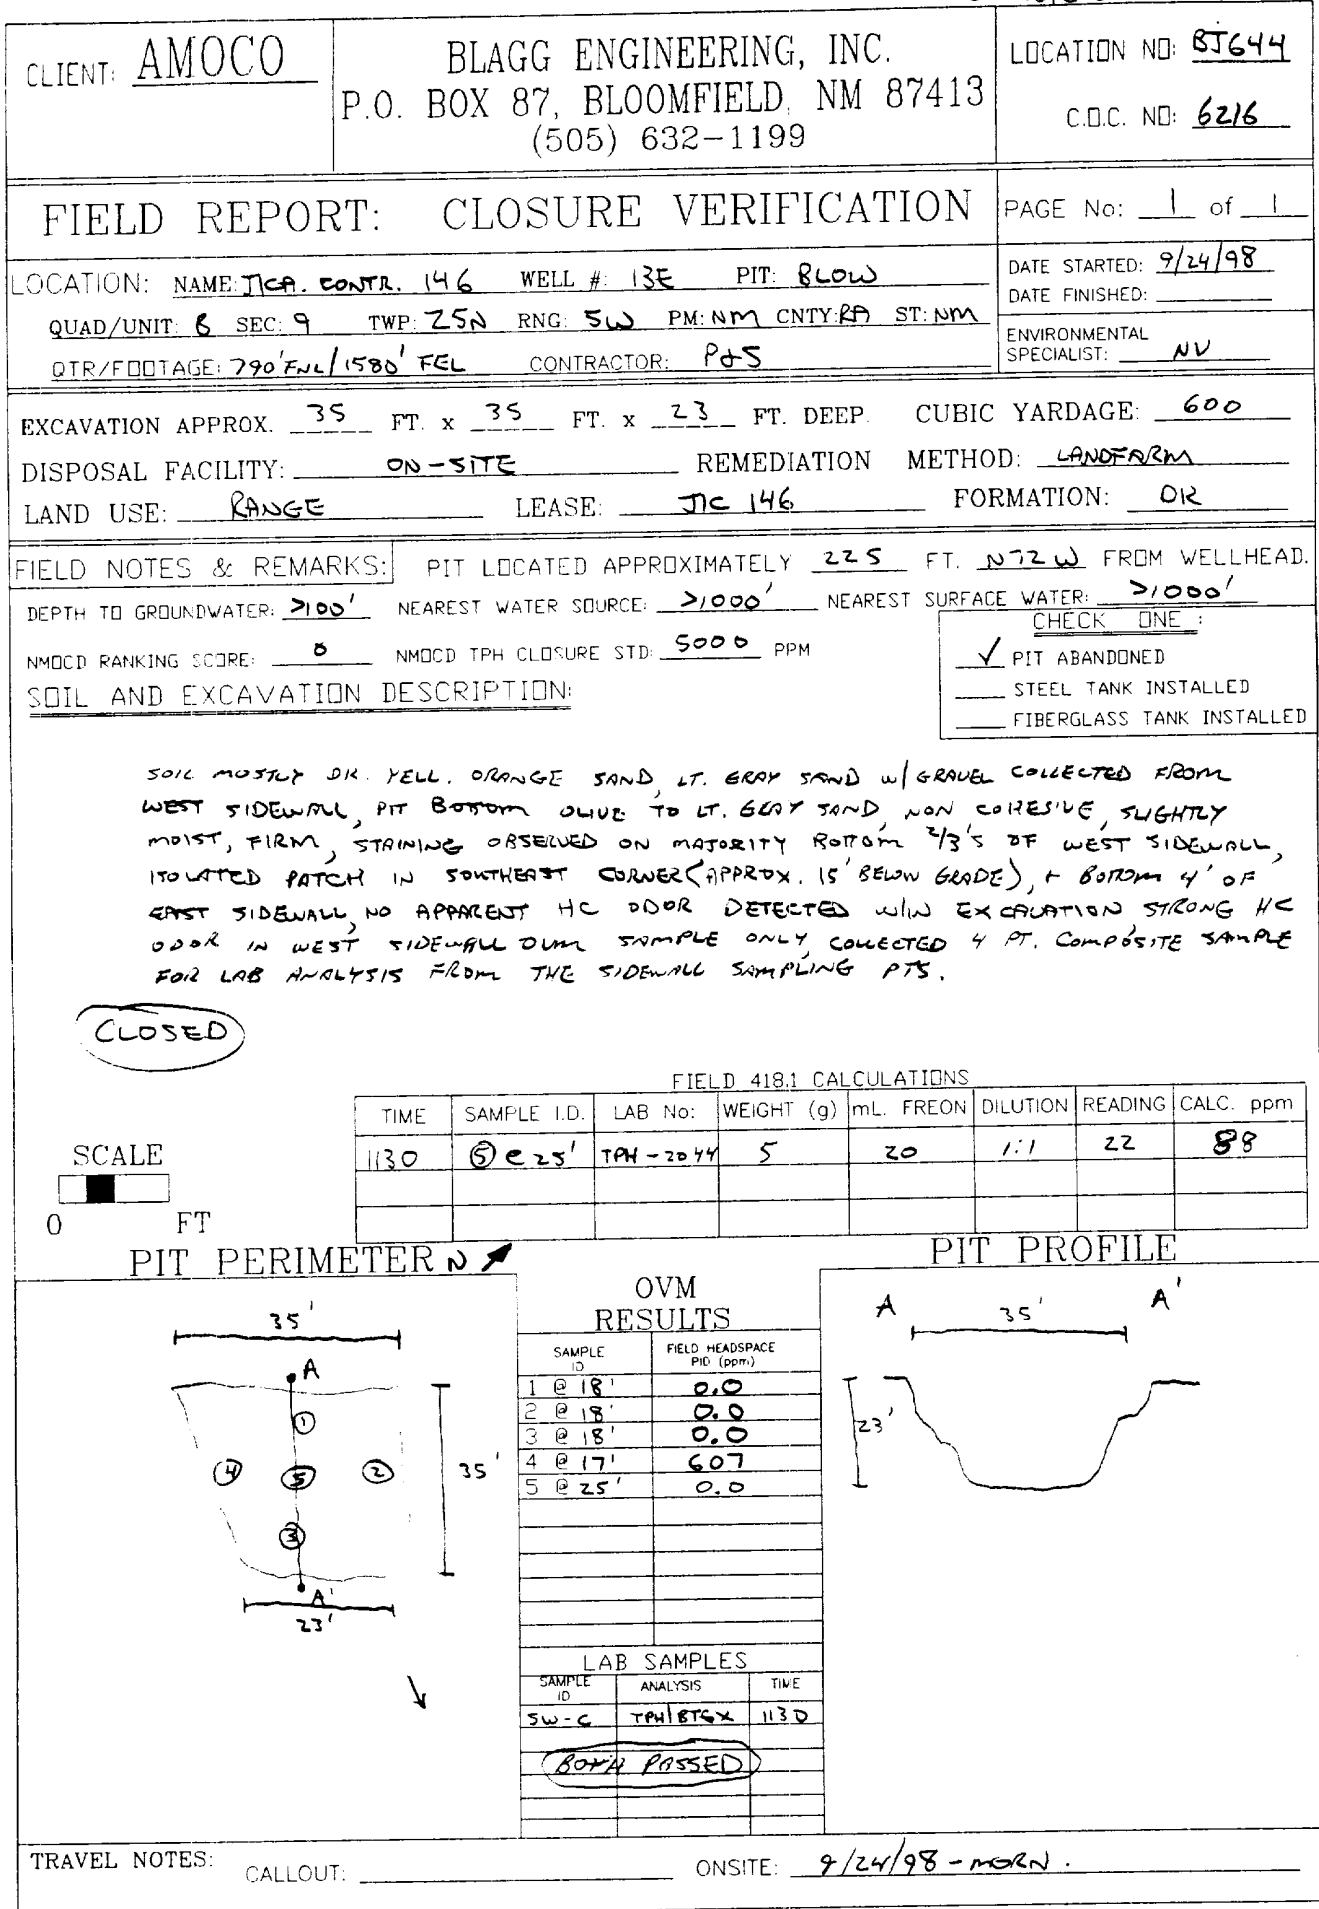 CLIENT: AMOCO
BLAGG ENGINEERING, INC.
P.O. BOX 87, BLOOMFIELD, NM 87413
(505) 632-1199
LOCATION NO: BJ644
C.O.C. NO: 6216
FIELD REPORT: CLOSURE VERIFICATION
PAGE No: 1 of 1
LOCATION: NAME: JICA. CONTR. 146 WELL #: 13E PIT: BLOW
QUAD/UNIT: B SEC: 9 TWP: 25N RNG: 5W PM: NM CNTY: RA ST: NM
QTR/FOOTAGE: 790' FNL/1580' FEL CONTRACTOR: P&S
DATE STARTED: 9/24/98
DATE FINISHED:
ENVIRONMENTAL
SPECIALIST: NV
EXCAVATION APPROX. 35 FT. x 35 FT. x 23 FT. DEEP. CUBIC YARDAGE: 600
DISPOSAL FACILITY: ON-SITE REMEDIATION METHOD: LANDFARM
LAND USE: RANGE LEASE: JIC 146 FORMATION: DK
FIELD NOTES & REMARKS: PIT LOCATED APPROXIMATELY 225 FT. N72W FROM WELLHEAD.
DEPTH TO GROUNDWATER: >100' NEAREST WATER SOURCE: >1000' NEAREST SURFACE WATER: >1000'
NMOCD RANKING SCORE: 0 NMOCD TPH CLOSURE STD: 5000 PPM
CHECK ONE :
✓ PIT ABANDONED
STEEL TANK INSTALLED
FIBERGLASS TANK INSTALLED
SOIL AND EXCAVATION DESCRIPTION:
SOIL MOSTLY DK. YELL. ORANGE SAND, LT. GRAY SAND W/ GRAVEL COLLECTED FROM
WEST SIDEWALL, PIT BOTTOM OLIVE TO LT. GRAY SAND, NON COHESIVE, SLIGHTLY
MOIST, FIRM, STAINING OBSERVED ON MAJORITY BOTTOM 2/3'S OF WEST SIDEWALL,
ISOLATED PATCH IN SOUTHEAST CORNER (APPROX. 15' BELOW GRADE), + BOTTOM 4' OF
EAST SIDEWALL, NO APPARENT HC ODOR DETECTED W/IN EXCAVATION STRONG HC
ODOR IN WEST SIDEWALL OVM SAMPLE ONLY, COLLECTED 4 PT. COMPOSITE SAMPLE
FOR LAB ANALYSIS FROM THE SIDEWALL SAMPLING PTS.
CLOSED
FIELD 418.1 CALCULATIONS
TIME SAMPLE I.D. LAB No: WEIGHT (g) mL. FREON DILUTION READING CALC. ppm
1130 ⑤ @ 25' TPH-2044 5 20 1:1 22 88
SCALE
0 FT
PIT PERIMETER N
35'
A
①
④ ⑤ ②
35'
③
A'
23'
OVM
RESULTS
SAMPLE ID FIELD HEADSPACE PID (ppm)
1 @ 18' 0.0
2 @ 18' 0.0
3 @ 18' 0.0
4 @ 17' 607
5 @ 25' 0.0
LAB SAMPLES
SAMPLE ID ANALYSIS TIME
SW-C TPH/BTEX 1130
BOTH PASSED
PIT PROFILE
A 35' A'
23'
TRAVEL NOTES: CALLOUT: ONSITE: 9/24/98 - MORN.